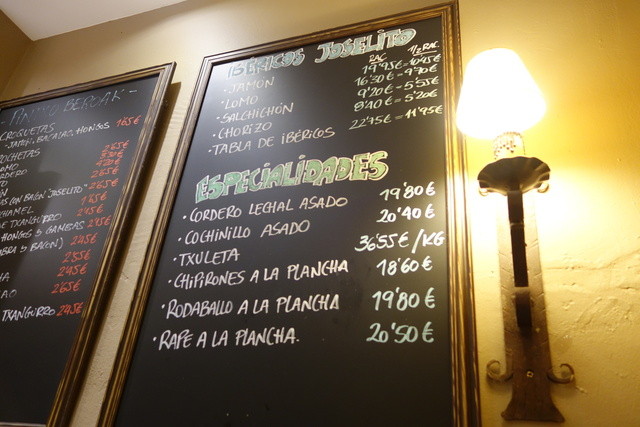 CROQUETAS
JAMÓN, BACALAO, HONGOS 1'65€
2'65€
2'65€
2'65€
1'65€
TXANGURRO 2'45€
HONGOS Y GAMBAS 2'45€
Y BACON) 2'45€
2'55€
2'45€
2'65€
TXANGURRO 2'45€
IBÉRICOS JOSELITO
RAC. 1/2 RAC.
· JAMÓN 19'95€ = 10'95€
· LOMO 16'30€ = 9'70€
· SALCHICHÓN 9'20€ = 5'55€
· CHORIZO 8'40€ = 5'20€
· TABLA DE IBÉRICOS 22'75€ = 11'95€
ESPECIALIDADES
· CORDERO LECHAL ASADO 19'80€
· COCHINILLO ASADO 20'40€
· TXULETA 36'55€/KG
· CHIPIRONES A LA PLANCHA 18'60€
· RODABALLO A LA PLANCHA 19'80€
· RAPE A LA PLANCHA. 20'50€